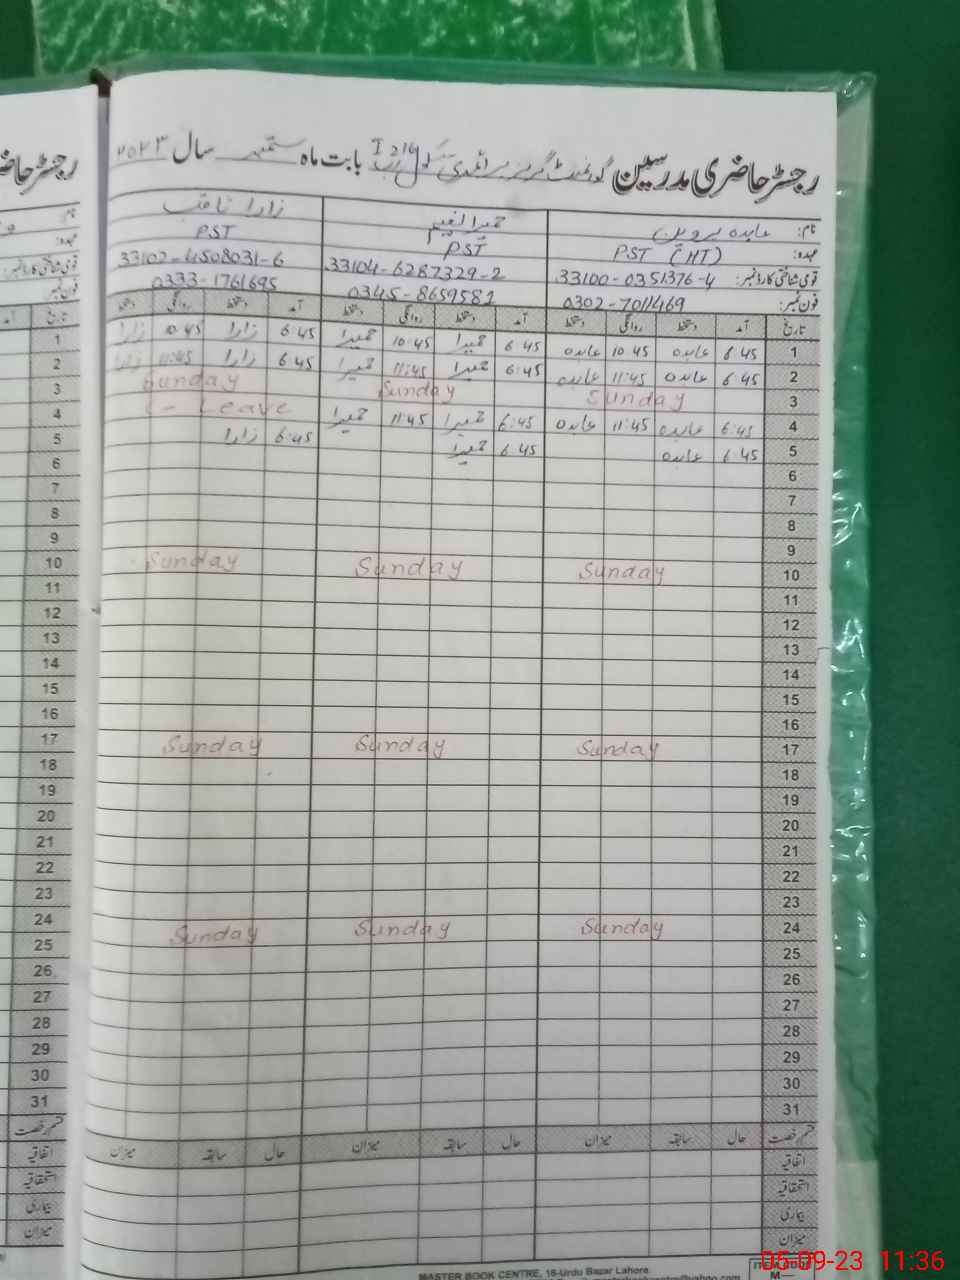 رجسٹر حاضری مدرسین گورنمنٹ گرلز پرائمری سکول 216 ر ب I بابت ماہ ستمبر سال ۲۰۲۳
نام: عابدہ پروین حمیرا نعیم زارا ثاقب
عہدہ: PST (HT) PST PST
قومی شناختی کارڈ نمبر: 33100-0351376-4 33104-6287329-2 33102-4508031-6
فون نمبر: 0302-7011469 0345-8659581 0333-1761695
تاریخ آمد دستخط روانگی دستخط آمد دستخط روانگی دستخط آمد دستخط روانگی دستخط تاریخ
1 6:45 عابدہ 10:45 عابدہ 6:45 حمیرا 10:45 حمیرا 6:45 زارا 10:45 زارا 1
2 6:45 عابدہ 11:45 عابدہ 6:45 حمیرا 11:45 حمیرا 6:45 زارا 11:45 زارا 2
3 Sunday Sunday Sunday 3
4 6:45 عابدہ 11:45 عابدہ 6:45 حمیرا 11:45 حمیرا Leave 4
5 6:45 عابدہ 6:45 حمیرا 6:45 زارا 5
6 6
7 7
8 8
9 9
10 Sunday Sunday Sunday 10
11 11
12 12
13 13
14 14
15 15
16 16
17 Sunday Sunday Sunday 17
18 18
19 19
20 20
21 21
22 22
23 23
24 Sunday Sunday Sunday 24
25 25
26 26
27 27
28 28
29 29
30 30
31 31
قسم رخصت حال سابقہ میزان حال سابقہ میزان حال سابقہ میزان قسم رخصت
اتفاقیہ اتفاقیہ
استحقاقیہ استحقاقیہ
بیماری بیماری
میزان میزان
MASTER BOOK CENTRE, 16-Urdu Bazar Lahore
05-09-23 11:36